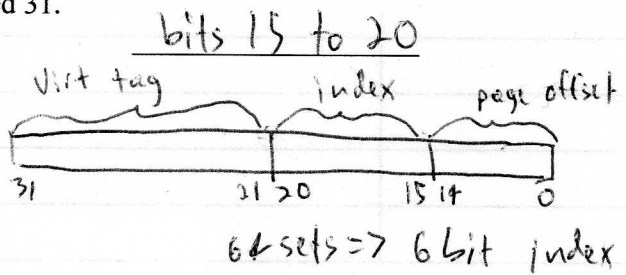 d 31.
bits 15 to 20
virt tag index page offset
31 21 20 15 14 0
64 sets => 6 bit index